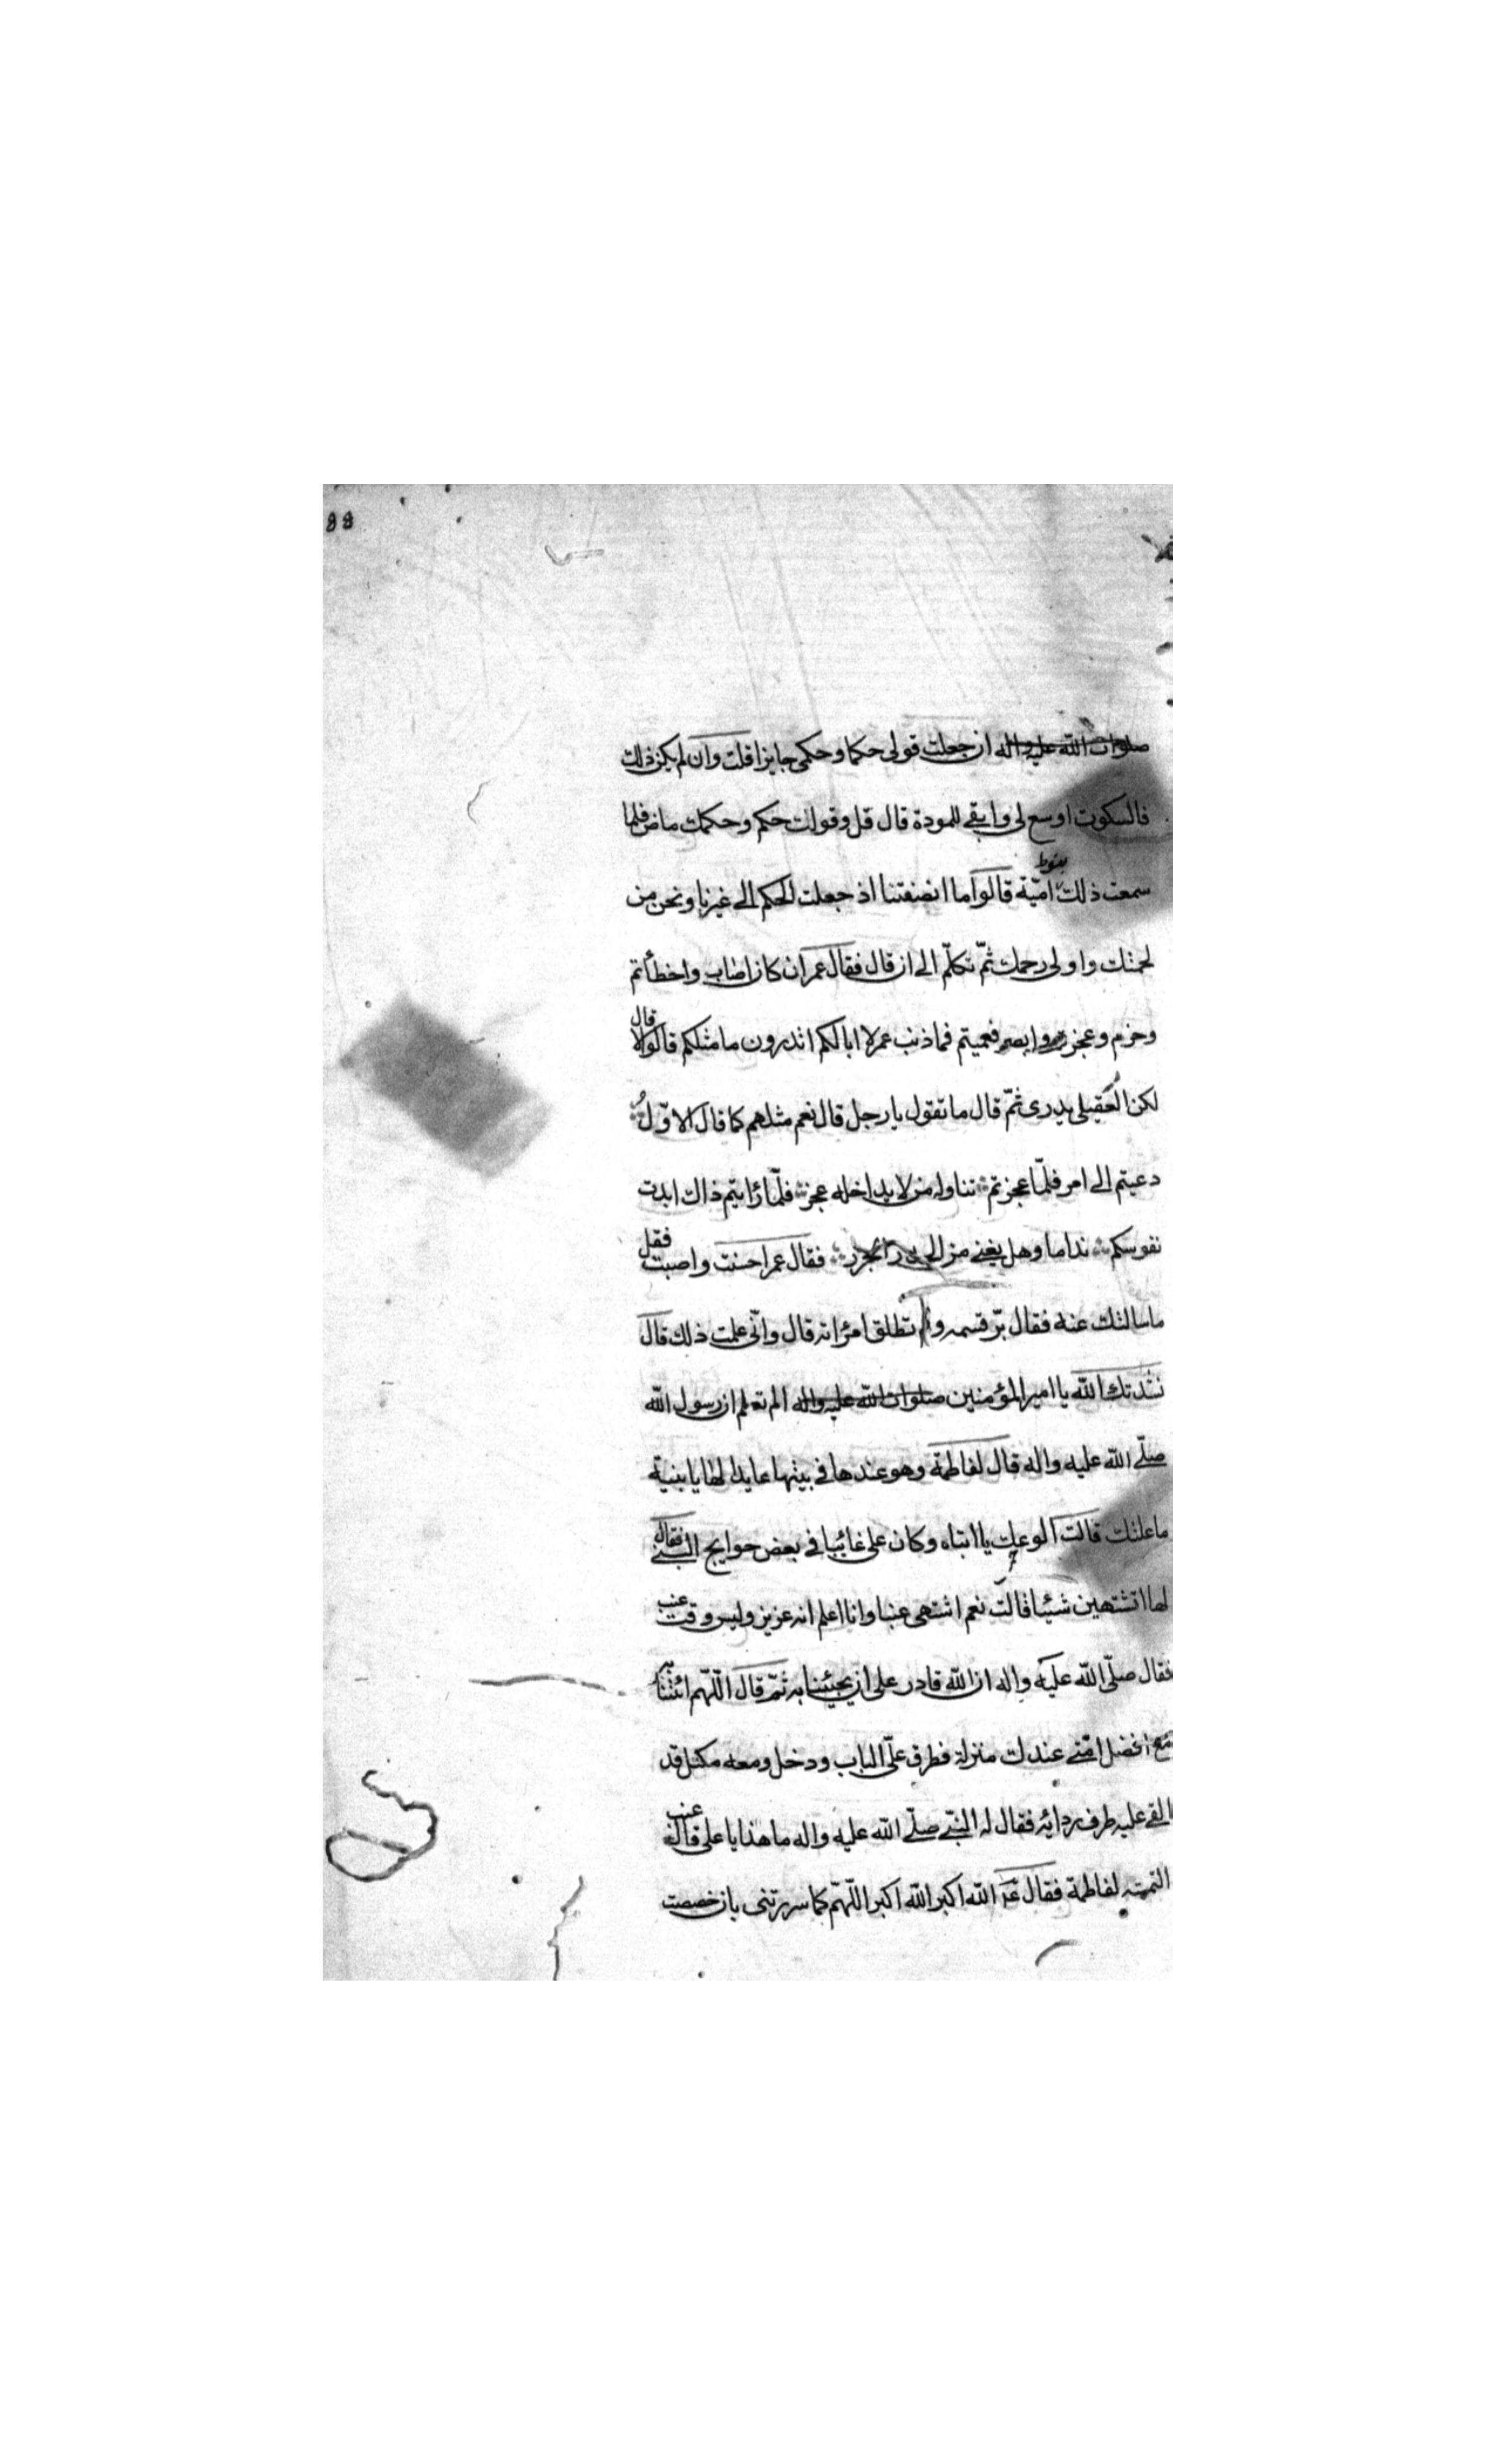 99
صلوات الله عليه واله ان جعلت قولى حكما وحكمى جايزا قلت وان لم يكن ذلك
فالسكوت اوسع لى وابقى للمودة قال قل وقولك حكم وحكمك ماض فلما
سمعت ذلك بنوا امية قالوا ما انصفتنا اذ جعلت الحكم الى غيرنا ونحن من
لحمتك واولى رحمك ثم تكلم الى ان قال فقال عمر ان كان اصاب واخطأتم
وحزم وعجزتم وابصر فعميتم فما ذنب عمر لا ابا لكم اتدرون ما مثلكم قالوا لا قال
لكن العقيلى يدرى ثم قال ما تقول يا رجل قال نعم مثلهم كما قال الاول
دعيتم الى امر فلما عجزتم تناوله من لا يداخله عجز فلما رأيتم ذاك ابدت
نفوسكم نداما وهل يغنى من فقال عمر احسنت واصبت فقل
ما سالتك عنه فقال بر قسمه ولم تطلق امرأته قال وانى علمت ذلك قال
نشدتك الله يا امير المؤمنين صلوات الله عليه واله الم تعلم ان رسول الله
صلى الله عليه واله قال لفاطمة وهو عندها فى بيتها عايد لها يا بنية
ما علتك قالت الوعك يا ابتاه وكان على غائبا فى بعض حوايج النبى فقال
لها اتشتهين شيئا قالت نعم اشتهى عنبا وانا اعلم انه عزيز وليس وقت عنب
فقال صلى الله عليه واله ان الله قادر على ان يجيئنا به ثم قال اللهم ائتنا به
مع افضل امتى عندك منزلة فطرق على الباب ودخل ومعه مكتل قد
القى عليه طرف ردائه فقال له النبى صلى الله عليه واله ما هذا يا على قال عنب
التمسته لفاطمة فقال الله اكبر الله اكبر اللهم كما سررتنى بان خصصت